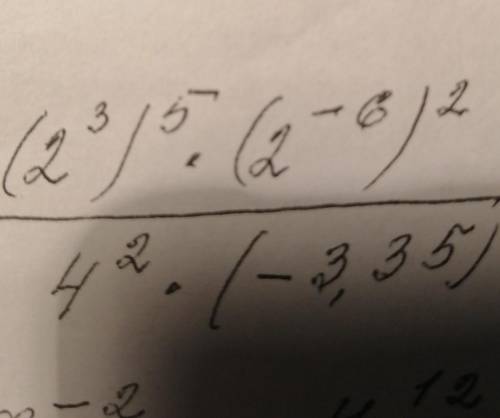 (2³)⁵ · (2⁻⁶)²
4² · (-3,35)
-2 12